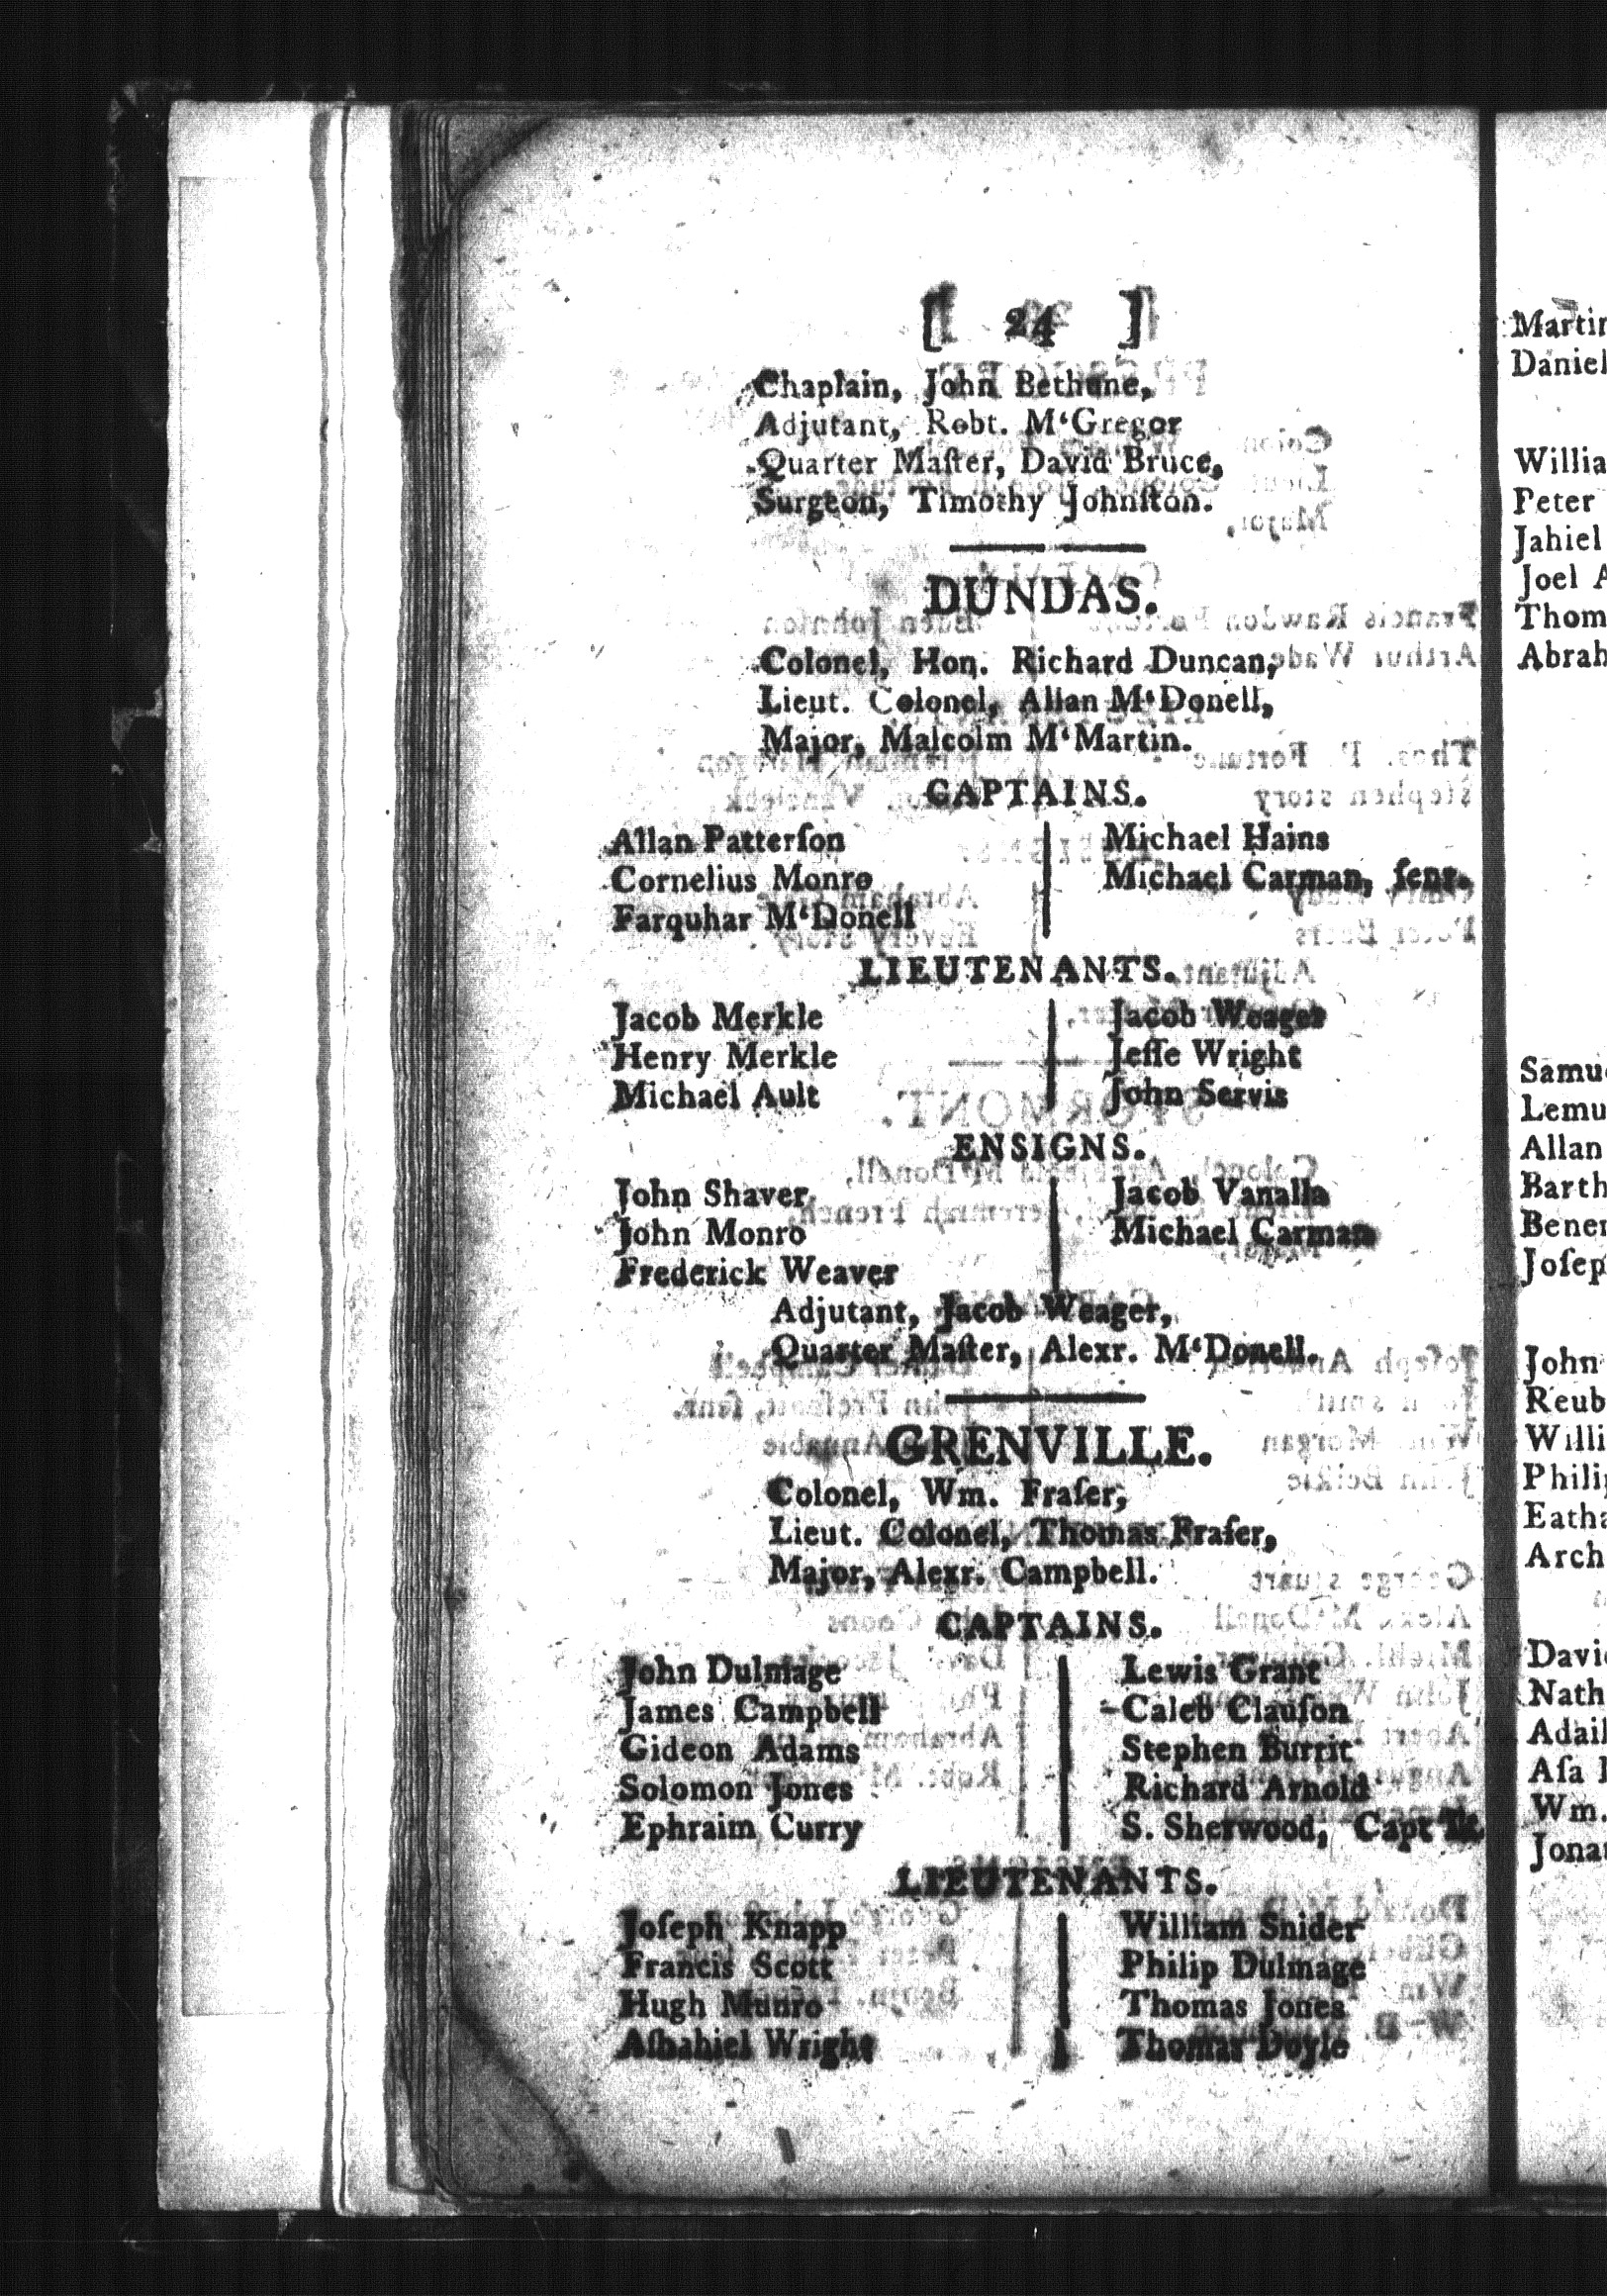 [ 24 ]
Chaplain, John Bethune,
Adjutant, Robt. M‘Gregor
Quarter Maſter, David Bruce,
Surgeon, Timothy Johnſton.
DUNDAS.
Colonel, Hon. Richard Duncan,
Lieut. Colonel, Allan M‘Donell,
Major, Malcolm M‘Martin.
CAPTAINS.
Allan Patterſon
Cornelius Monro
Farquhar M‘Donell
Michael Hains
Michael Carman, ſenr.
LIEUTENANTS.
Jacob Merkle
Henry Merkle
Michael Ault
Jacob Weager
Jeſſe Wright
John Servis
ENSIGNS.
John Shaver
John Monro
Frederick Weaver
Jacob Vanalla
Michael Carman
Adjutant, Jacob Weager,
Quarter Maſter, Alexr. M‘Donell.
GRENVILLE.
Colonel, Wm. Fraſer,
Lieut. Colonel, Thomas Fraſer,
Major, Alexr. Campbell.
CAPTAINS.
John Dulmage
James Campbell
Gideon Adams
Solomon Jones
Ephraim Curry
Lewis Grant
Caleb Clauſon
Stephen Burrit
Richard Arnold
S. Sherwood, Capt
LIEUTENANTS.
Joſeph Knapp
Francis Scott
Hugh Munro
Aſhahiel Wright
William Snider
Philip Dulmage
Thomas Jones
Thomas Doyle
Daniel
Peter
Jahiel
Joel
Allan
John
David
Aſa
Wm.